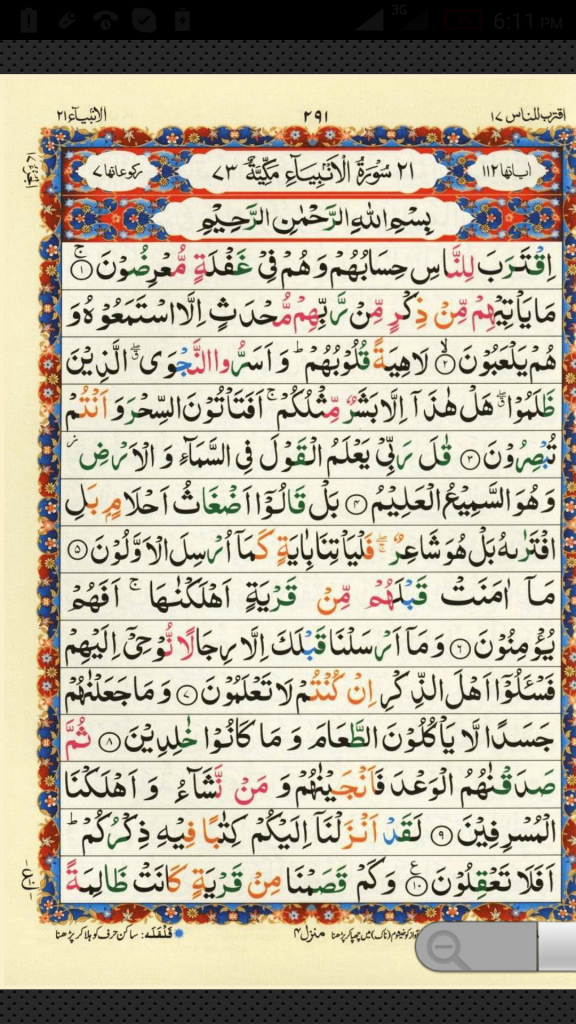 3G 6:11 PM
اقترب للناس ١٧ ٢٩١ الانبياء ٢١
اٰياتها ١١٢ ٢١ سُوْرَةُ الْاَنْۢبِيَآءِ مَكِّيَّةٌ ٧٣ ركوعاتها ٧
بِسْمِ اللهِ الرَّحْمٰنِ الرَّحِيْمِ
اِقْتَرَبَ لِلنَّاسِ حِسَابُهُمْ وَ هُمْ فِيْ غَفْلَةٍ مُّعْرِضُوْنَ ۚ ١
مَا يَاْتِيْهِمْ مِّنْ ذِكْرٍ مِّنْ رَّبِّهِمْ مُّحْدَثٍ اِلَّا اسْتَمَعُوْهُ وَ
هُمْ يَلْعَبُوْنَ ۙ ٢ لَاهِيَةً قُلُوْبُهُمْ ؕ وَ اَسَرُّوا النَّجْوَى ۖۗ الَّذِيْنَ
ظَلَمُوْا ۖۗ هَلْ هٰذَاۤ اِلَّا بَشَرٌ مِّثْلُكُمْ ۚ اَفَتَاْتُوْنَ السِّحْرَ وَ اَنْتُمْ
تُبْصِرُوْنَ ٣ قٰلَ رَبِّيْ يَعْلَمُ الْقَوْلَ فِي السَّمَآءِ وَ الْاَرْضِ ؗ
وَ هُوَ السَّمِيْعُ الْعَلِيْمُ ٤ بَلْ قَالُوْۤا اَضْغَاثُ اَحْلَامٍۭ بَلِ
افْتَرٰىهُ بَلْ هُوَ شَاعِرٌ ۖۚ فَلْيَاْتِنَا بِاٰيَةٍ كَمَاۤ اُرْسِلَ الْاَوَّلُوْنَ ٥
مَاۤ اٰمَنَتْ قَبْلَهُمْ مِّنْ قَرْيَةٍ اَهْلَكْنٰهَا ۚ اَفَهُمْ
يُؤْمِنُوْنَ ٦ وَ مَاۤ اَرْسَلْنَا قَبْلَكَ اِلَّا رِجَالًا نُّوْحِيْۤ اِلَيْهِمْ
فَسْـَٔلُوْۤا اَهْلَ الذِّكْرِ اِنْ كُنْتُمْ لَا تَعْلَمُوْنَ ٧ وَ مَا جَعَلْنٰهُمْ
جَسَدًا لَّا يَاْكُلُوْنَ الطَّعَامَ وَ مَا كَانُوْا خٰلِدِيْنَ ٨ ثُمَّ
صَدَقْنٰهُمُ الْوَعْدَ فَاَنْجَيْنٰهُمْ وَ مَنْ نَّشَآءُ وَ اَهْلَكْنَا
الْمُسْرِفِيْنَ ٩ لَقَدْ اَنْزَلْنَاۤ اِلَيْكُمْ كِتٰبًا فِيْهِ ذِكْرُكُمْ ؕ
اَفَلَا تَعْقِلُوْنَ ١٠ ع وَ كَمْ قَصَمْنَا مِنْ قَرْيَةٍ كَانَتْ ظَالِمَةً
میں چھپا کر پڑھنا منزل ٤ قَلْقَلَه: ساکن حرف کو ہلا کر پڑھنا